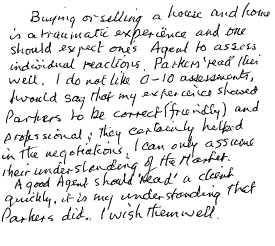 Buying or selling a house and home
is a traumatic experience and one
should expect ones Agent to assess
individual reactions. Parkers 'read' this
well. I do not like 0-10 assessments,
I would say that my experiences showed
Parkers to be correct (friendly) and
professional; they certainly helped
in the negotiations. I can only assume
their understanding of the Market.
A good Agent should 'read' a client
quickly, it is my understanding that
Parkers did. I wish them well.